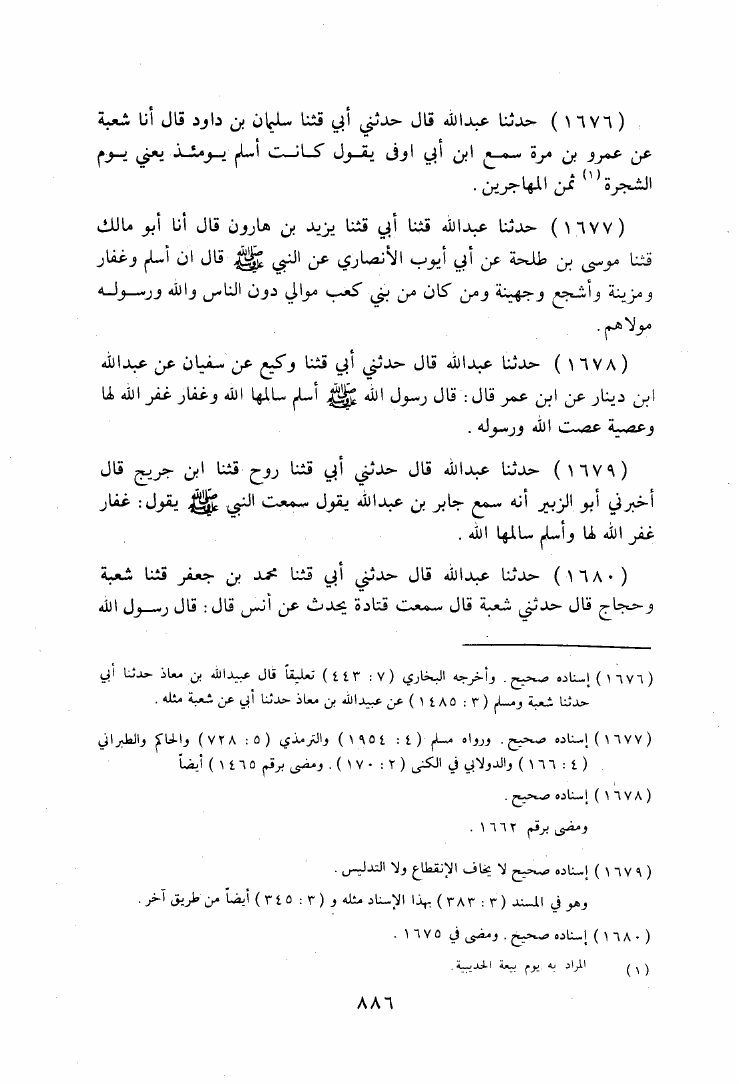 (١٦٧٦) حدثنا عبدالله قال حدثني أبي قثنا سليمان بن داود قال أنا شعبة
عن عمرو بن مرة سمع ابن أبي اوفى يقول كانت أسلم يومئذ يعني يوم
الشجرة(١) ثمن المهاجرين .
(١٦٧٧) حدثنا عبدالله قثنا أبي قثنا يزيد بن هارون قال أنا أبو مالك
قثنا موسى بن طلحة عن أبي أيوب الأنصاري عن النبي ﷺ قال ان أسلم وغفار
ومزينة وأشجع وجهينة ومن كان من بني كعب موالي دون الناس والله ورسوله
مولاهم .
(١٦٧٨) حدثنا عبدالله قال حدثني أبي قثنا وكيع عن سفيان عن عبدالله
ابن دينار عن ابن عمر قال : قال رسول الله ﷺ أسلم سالمها الله وغفار غفر الله لها
وعصية عصت الله ورسوله .
(١٦٧٩) حدثنا عبدالله قال حدثني أبي قثنا روح قثنا ابن جريج قال
أخبرني أبو الزبير أنه سمع جابر بن عبدالله يقول سمعت النبي ﷺ يقول : غفار
غفر الله لها وأسلم سالمها الله .
(١٦٨٠) حدثنا عبدالله قال حدثني أبي قثنا محمد بن جعفر قثنا شعبة
وحجاج قال حدثني شعبة قال سمعت قتادة يحدث عن أنس قال : قال رسول الله
(١٦٧٦) إسناده صحيح . وأخرجه البخاري (٧ : ٤٤٣) تعليقاً قال عبيدالله بن معاذ حدثنا أبي
حدثنا شعبة ومسلم (٣ : ١٤٨٥) عن عبيدالله بن معاذ حدثنا أبي عن شعبة مثله .
(١٦٧٧) إسناده صحيح . ورواه مسلم (٤ : ١٩٥٤) والترمذي (٥ : ٧٢٨) والحاكم والطبراني
(٤ : ١٦٦) والدولابي في الكنى (٢ : ١٧٠) . ومضى برقم ١٤٦٥) أيضاً
(١٦٧٨) إسناده صحيح .
ومضى برقم ١٦٦٢ .
(١٦٧٩) إسناده صحيح لا يخاف الإنقطاع ولا التدليس .
وهو في المسند (٣ : ٣٨٣) بهذا الإسناد مثله و (٣ : ٣٤٥) أيضاً من طريق آخر .
(١٦٨٠) إسناده صحيح . ومضى في ١٦٧٥ .
(١) المراد به يوم بيعة الحديبية .
٨٨٦